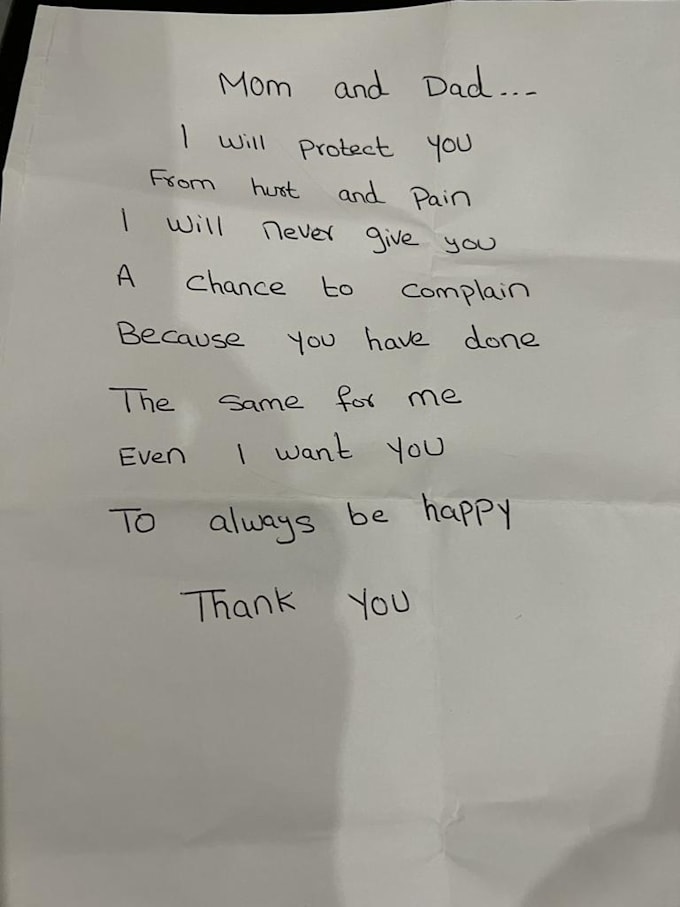 Mom and Dad...
I will protect you
From hurt and Pain
I will never give you
A chance to complain
Because you have done
The same for me
Even I want you
To always be happy
Thank you